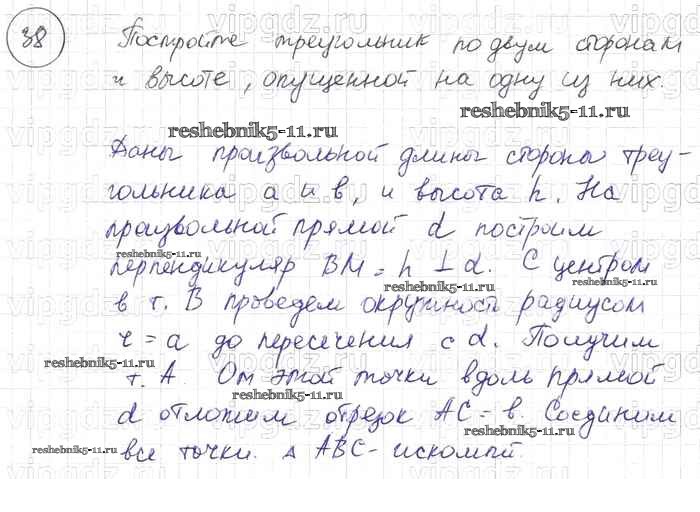 38 Постройте треугольник по двум сторонам
и высоте, опущенной на одну из них.
reshebnik5-11.ru
reshebnik5-11.ru
Даны произвольной длины стороны треу-
гольника а и в, и высота h. На
произвольной прямой d построим
reshebnik5-11.ru
перпендикуляр BM = h ⊥ d. С центром
reshebnik5-11.ru
в т. B проведем окружность радиусом
r = a до пересечения с d. Получим
reshebnik5-11.ru
т. A. От этой точки вдоль прямой
reshebnik5-11.ru
d отложим отрезок AC = в. Соединим
reshebnik5-11.ru
все точки. △ ABC - искомый.
reshebnik5-11.ru